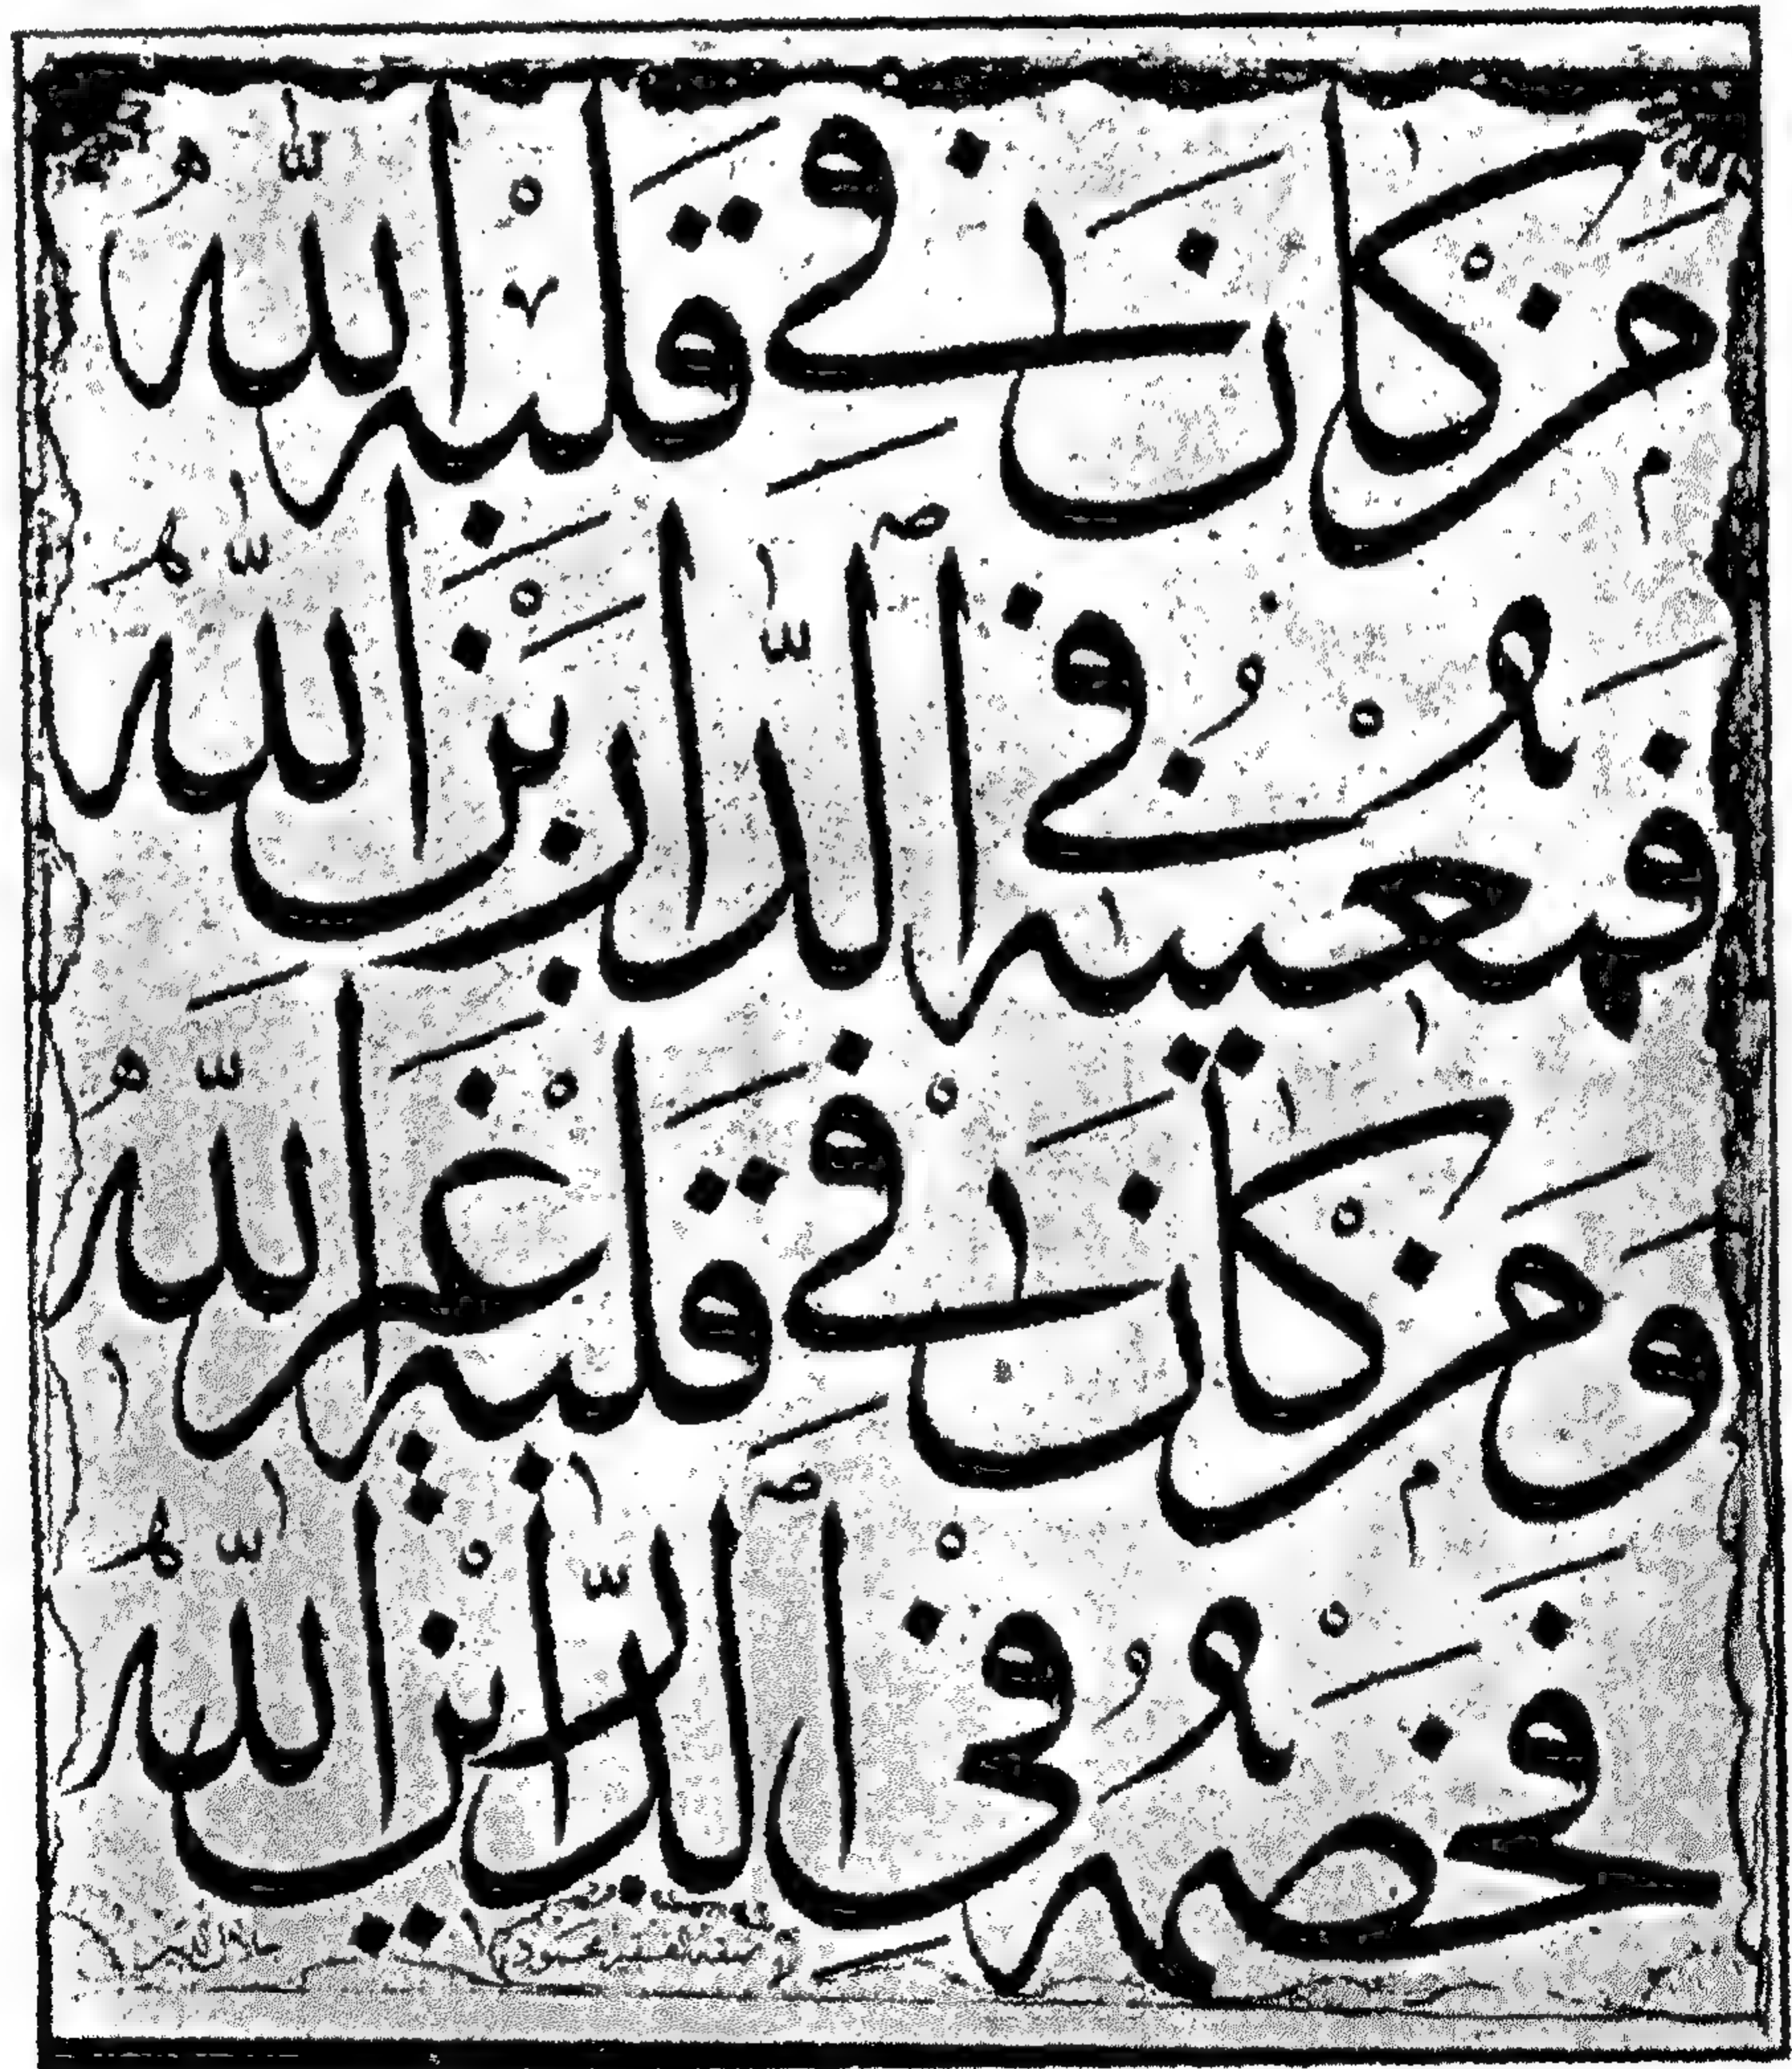 مَنْ كَانَ فِي قَلْبِهِ اللّٰهُ
فَمُعِينُهُ فِي ٱلدَّارَيْنِ اللّٰهُ
وَمَنْ كَانَ فِي قَلْبِهِ غَيْرُ اللّٰهِ
فَخَصْمُهُ فِي ٱلدَّارَيْنِ اللّٰهُ